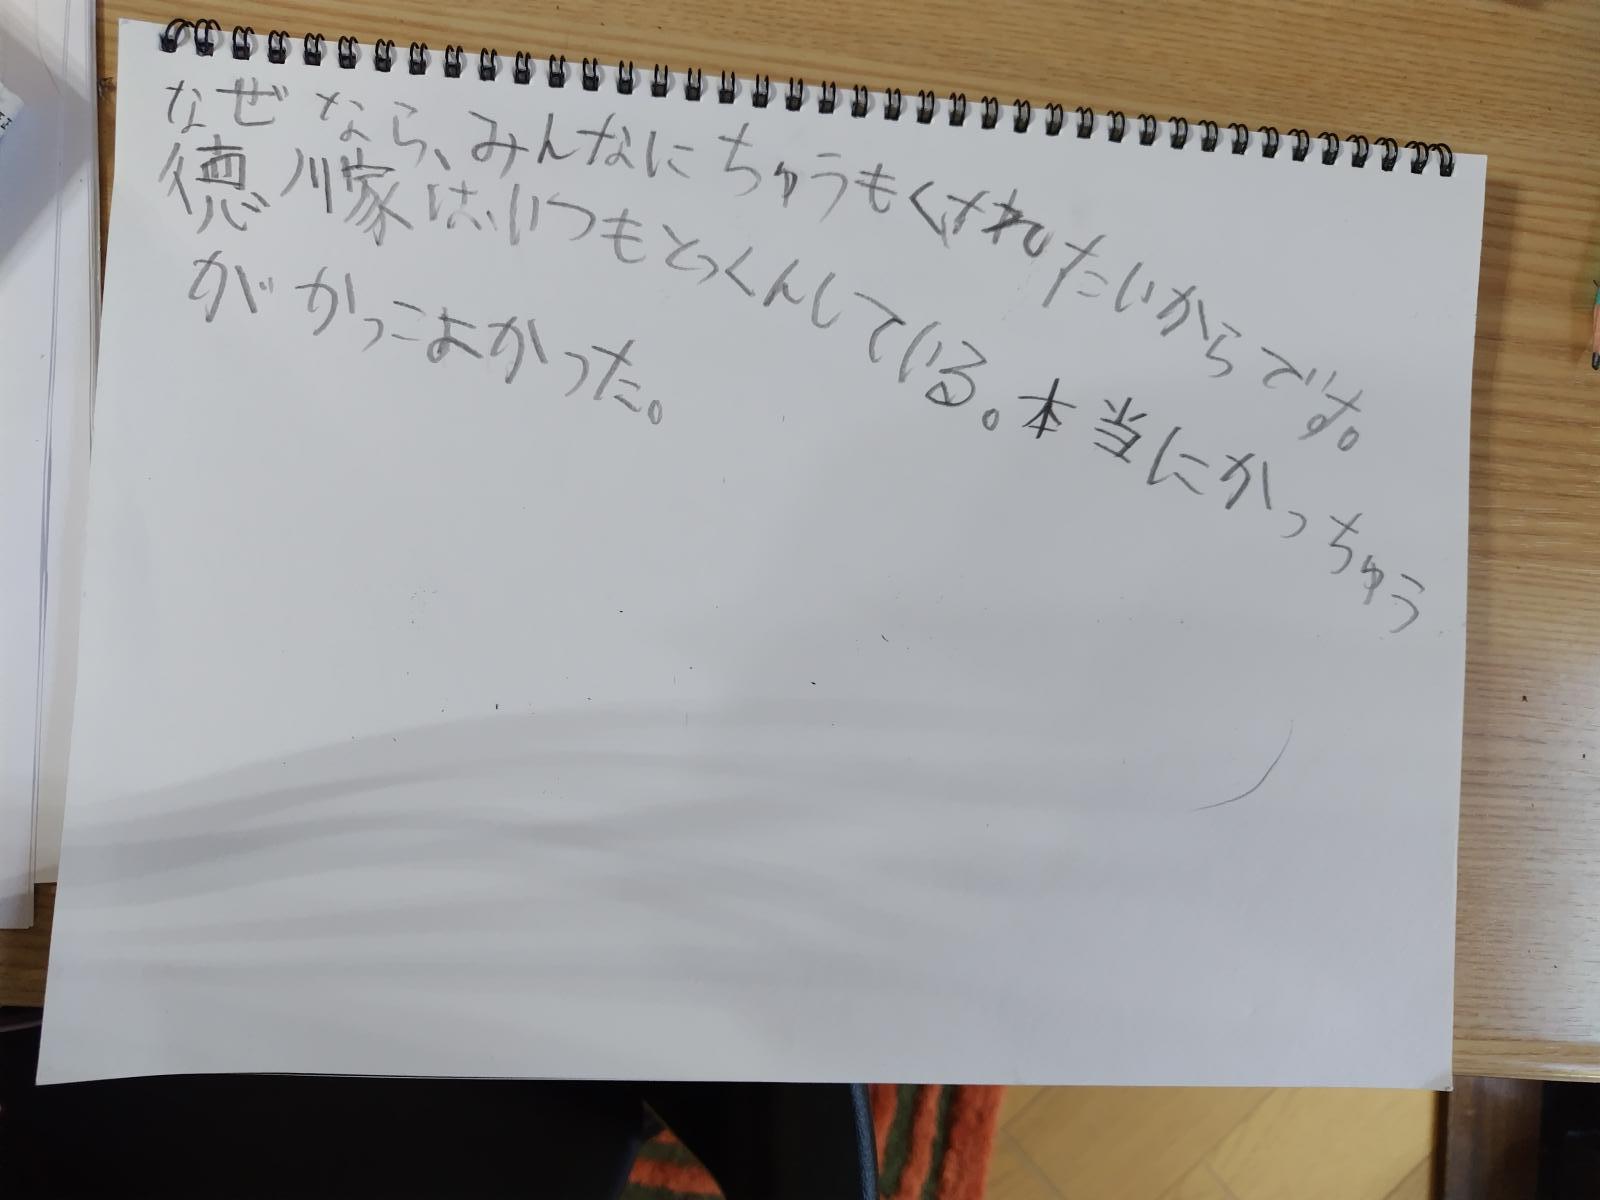 なぜなら、みんなにちゅうもくされたいからです。
徳川家は、いつもとっくんしている。本当にかっちゅう
がかっこよかった。